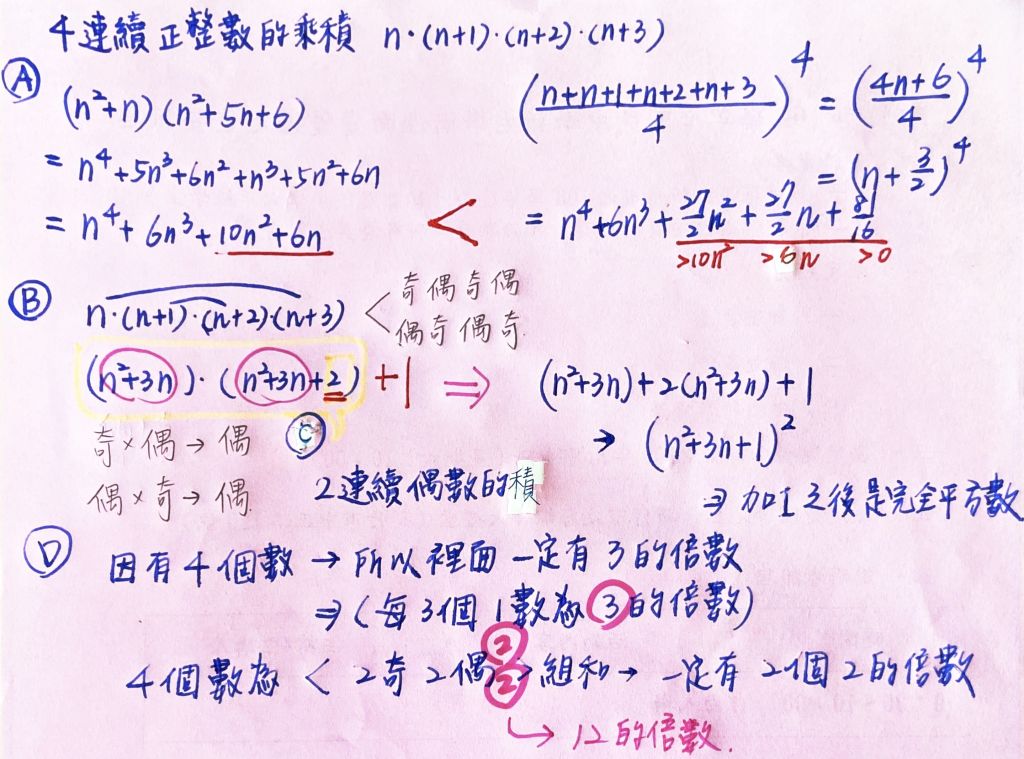 4連續正整數的乘積 n·(n+1)·(n+2)·(n+3)
Ⓐ
(n²+n)(n²+5n+6)
= n⁴+5n³+6n²+n³+5n²+6n
= n⁴+6n³+10n²+6n
<
((n+n+1+n+2+n+3)/4)⁴ = ((4n+6)/4)⁴
= (n+3/2)⁴
= n⁴+6n³+27/2n²+27/2n+81/16
>10n² >6n >0
Ⓑ
n·(n+1)·(n+2)(n+3) < 奇偶奇偶
偶奇偶奇.
(n²+3n)·(n²+3n+2)+1 ⇒ (n²+3n)+2(n²+3n)+1
→ (n²+3n+1)²
⇒ 加1之後是完全平方數
奇×偶→偶
偶×奇→偶.
Ⓒ
2連續偶數的積
Ⓓ 因有4個數→所以裡面一定有3的倍數
⇒(每3個1數為③的倍數)
4個數為<2奇2偶>組和→一定有2個2的倍數
② ②
↳ 12的倍數.